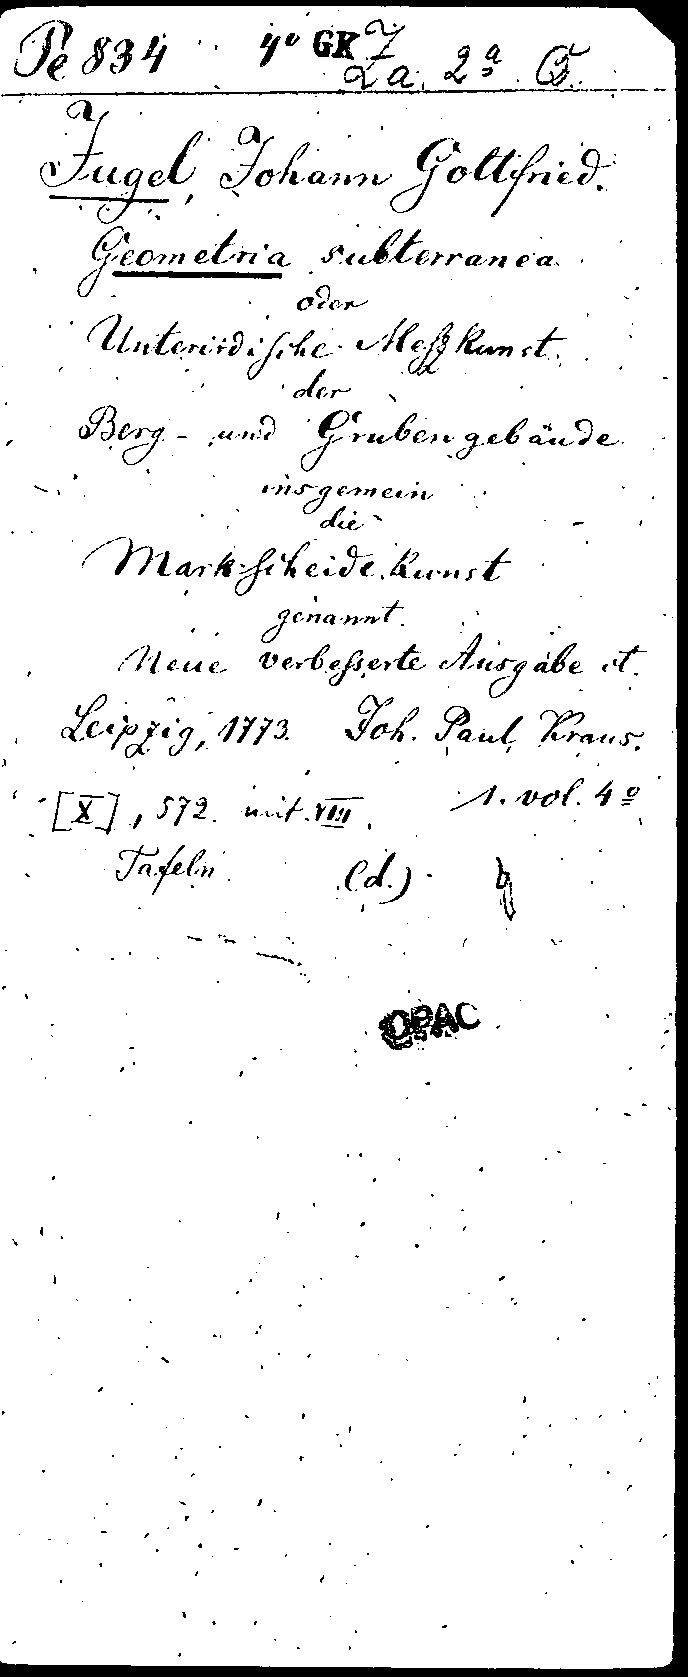 Pe 834 4° GK 7
2a. 2ª
Jugel, Johann Gottfried.
Geometria subterranea
oder
Unterirdische Meßkunst
der
Berg- und Grubengebäude
insgemein
die
Markscheidekunst
genannt.
Neue verbesserte Ausgabe
Leipzig, 1773. Joh. Paul Kraus.
[X], 572. mit VIII. 1. vol. 4º
Tafeln (d.)
OPAC